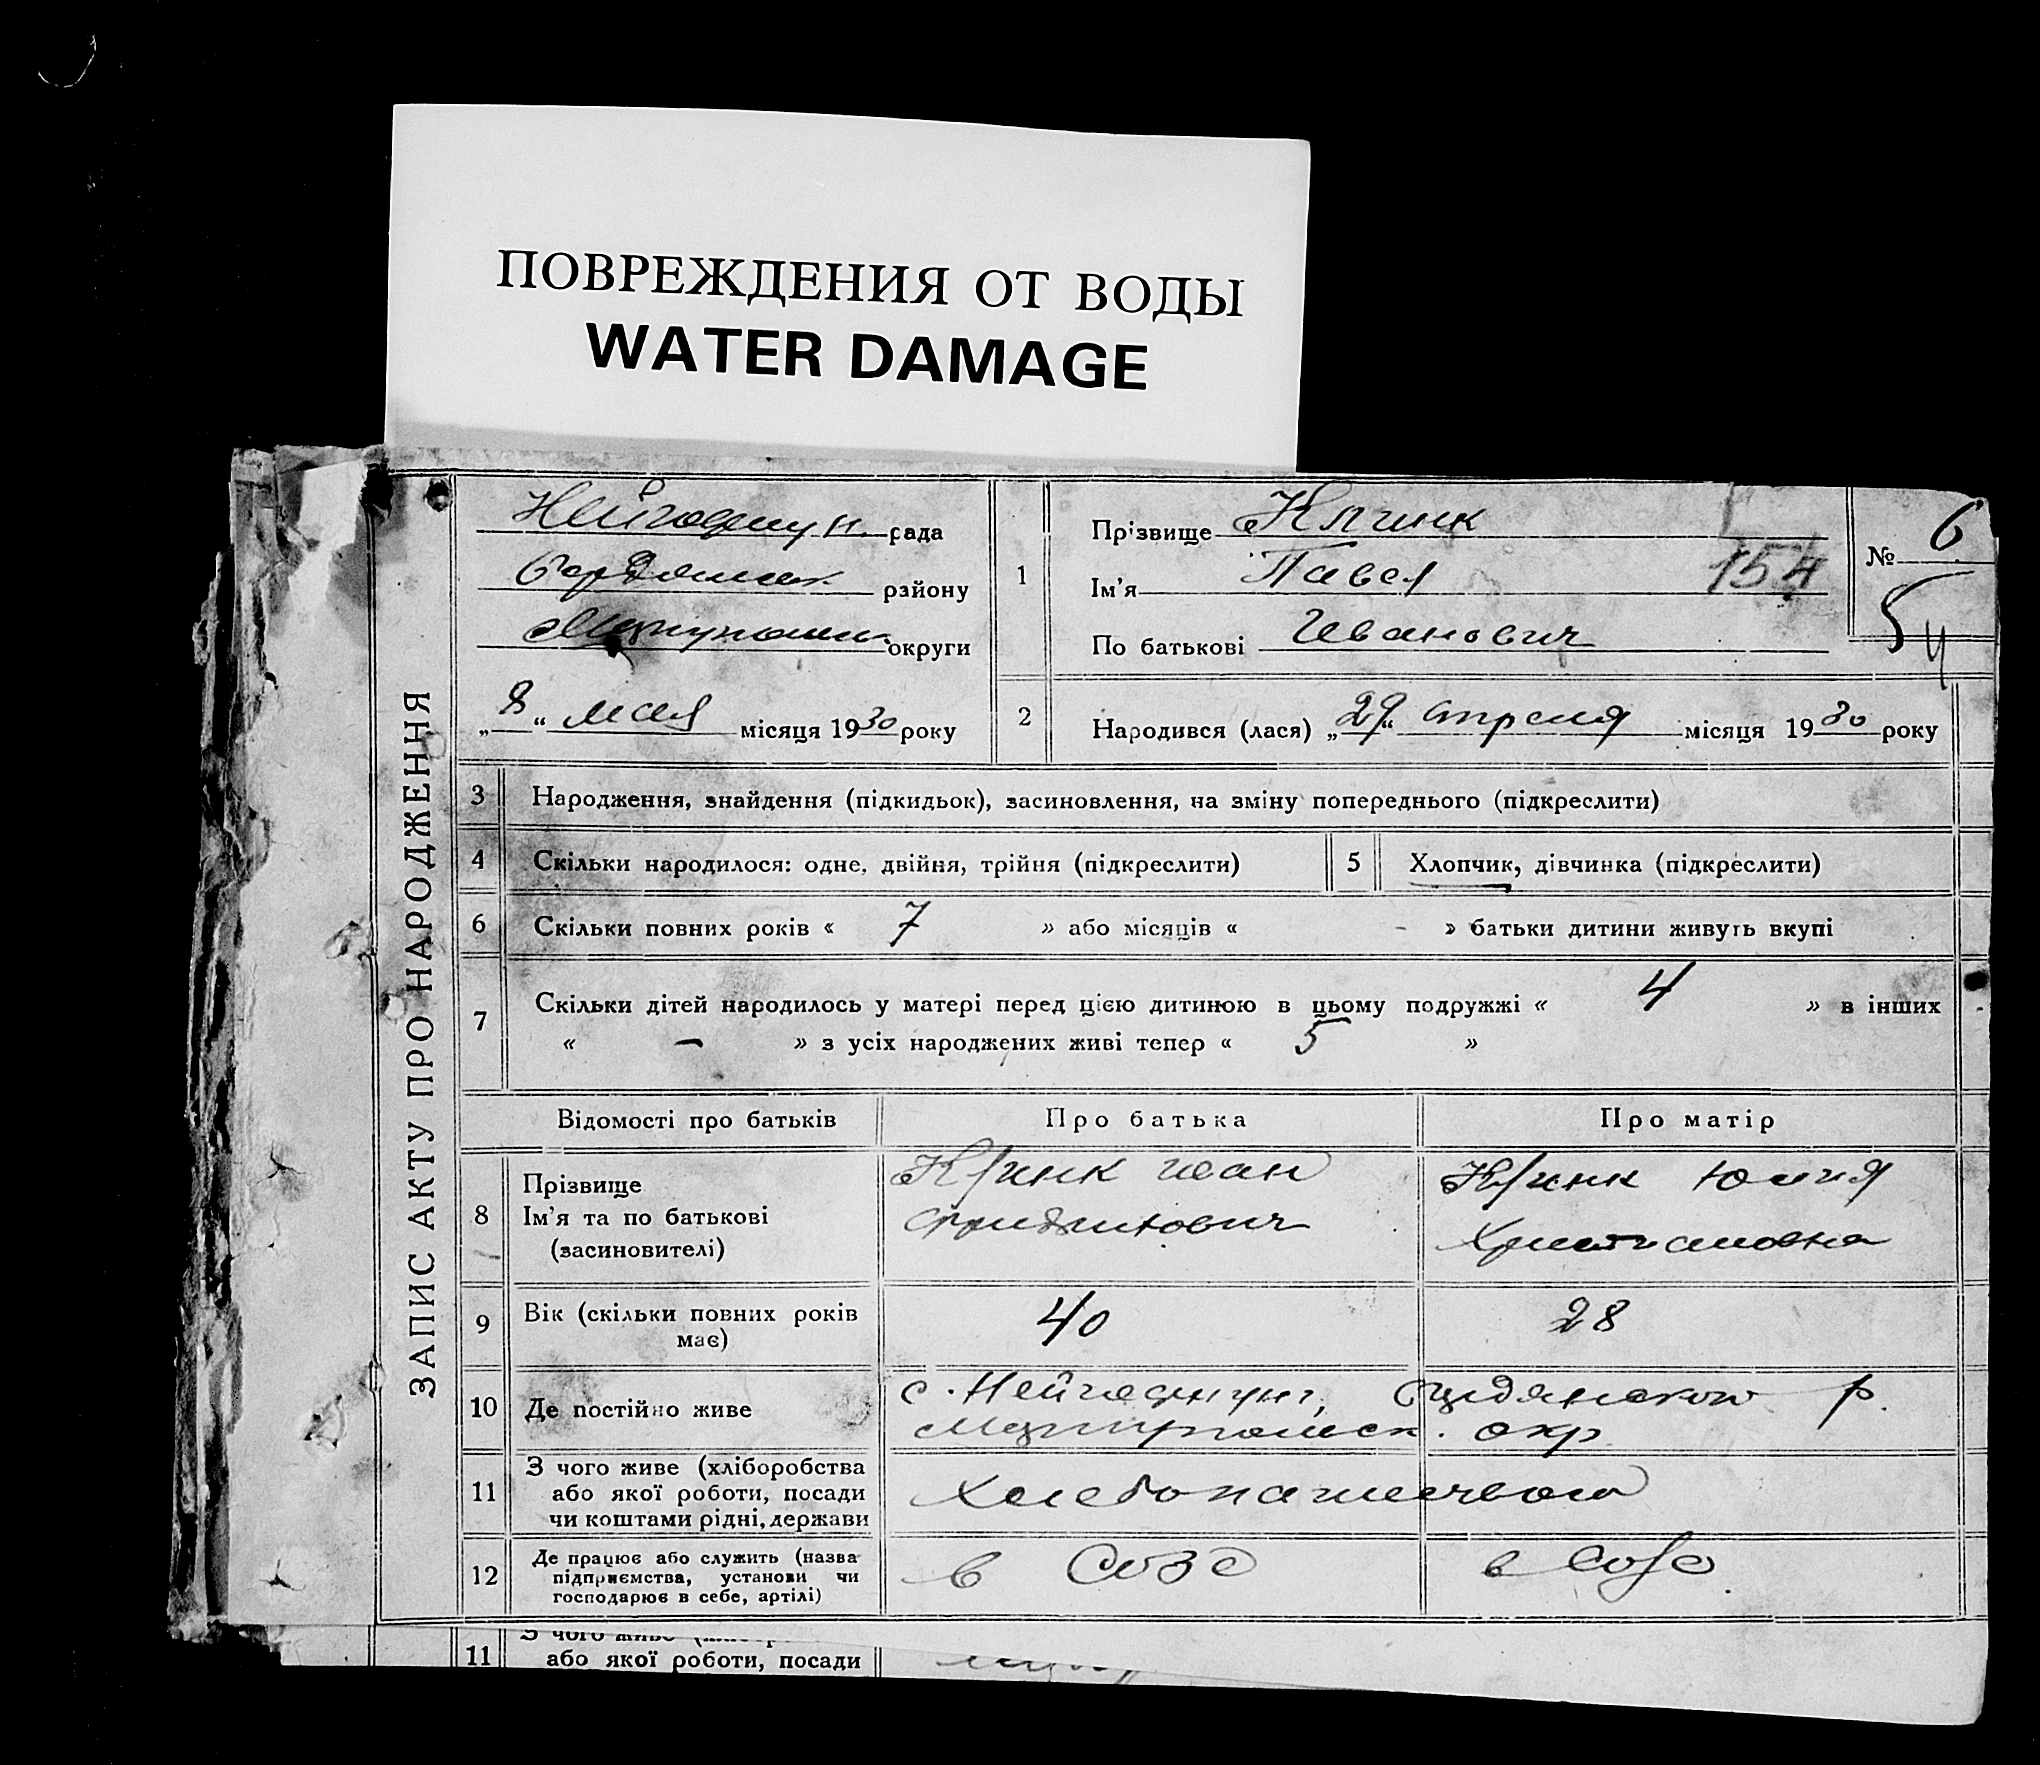 ПОВРЕЖДЕНИЯ ОТ ВОДЫ
WATER DAMAGE
ЗАПИС АКТУ ПРО НАРОДЖЕННЯ
рада
району
округи
„8“ мая місяця 1930 року
1
Прізвище Клинк
Ім’я Павел 154
По батькові Иванович
№ 6
54
2 Народився (лася) „29“ апреля місяця 1930 року
3 Народження, знайдення (підкидьок), засиновлення, на зміну попереднього (підкреслити)
4 Скільки народилося: одне, двійня, трійня (підкреслити) 5 Хлопчик, дівчинка (підкреслити)
6 Скільки повних років « 7 » або місяців « - » батьки дитини живуть вкупі
7 Скільки дітей народилось у матері перед цією дитиною в цьому подружжі « 4 » в інших
« — » з усіх народжених живі тепер « 5 »
Відомості про батьків Про батька Про матір
8 Прізвище Клинк Иван Клинк Юлия
Ім’я та по батькові Христиановна
(засиновителі)
9 Вік (скільки повних років 40 28
має)
10 Де постійно живе с. р.
окр
11 З чого живе (хліборобства
або якої роботи, посади Хлебопашеством
чи коштами рідні, держави
12 Де працює або служить (назва в Созе в Созе
підприємства, установи чи
господарює в себе, артілі)
11 або якої роботи, посади